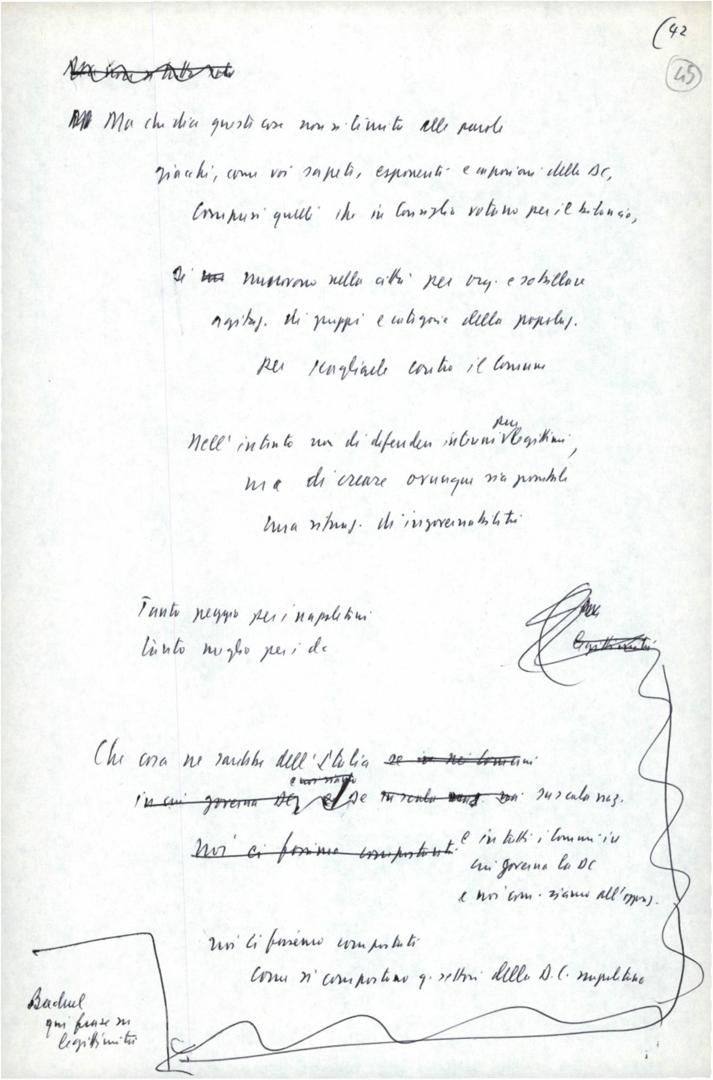 42
45
Ma che dica queste cose non si limita alle parole
giacchè, come voi sapete, esponenti e campioni della DC,
compresi quelli che in Consiglio votano per il bilancio,
si muovono nella città per org. e sobillare
agitaz. di gruppi e categorie della popolaz.
per scagliarle contro il Comune
Nell'intento non di difendere interessi pur legittimi,
ma di creare ovunque sia possibile
una situaz. di ingovernabilità
Tanto peggio per i napoletani
tanto meglio per i dc
pur
legittimità
Che cosa ne sarebbe dell'Italia se in nei comuni
in cui governa DC e noi siamo e se su scala naz. su scala naz.
noi ci fossimo comportati
e in tutti i Comuni in
cui governa la DC
e noi com. siamo all'oppos.
noi ci fossimo comportati
come si comportano q. settori della D.C. napoletana
qui frase su
legittimità